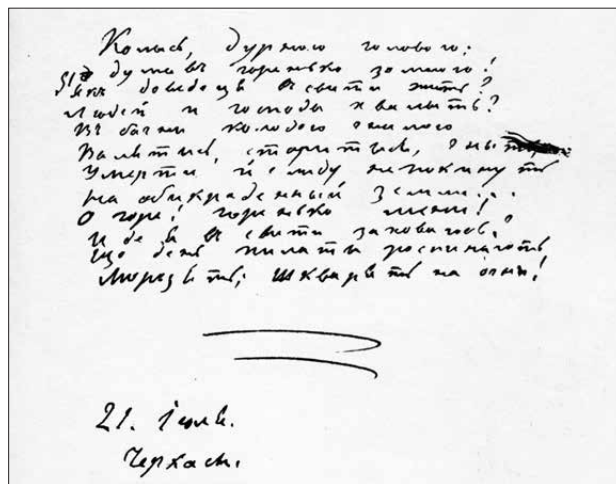 Колысь, дурною головою:
Я думавъ горенько зо мною!
Якъ доведецця в свити жить?
Людей и господа хвалыть?
Въ багни колодою гнилою
Валятись, старитись, гныть
Умерты й слиду не покинуть
На обикраденный земли...
О горе! горенько мени!
И де я в свити заховаюсь?
Що день пилаты роспинають
Морозять, шкварять на огни!
21. Іюля.
Черкасы.